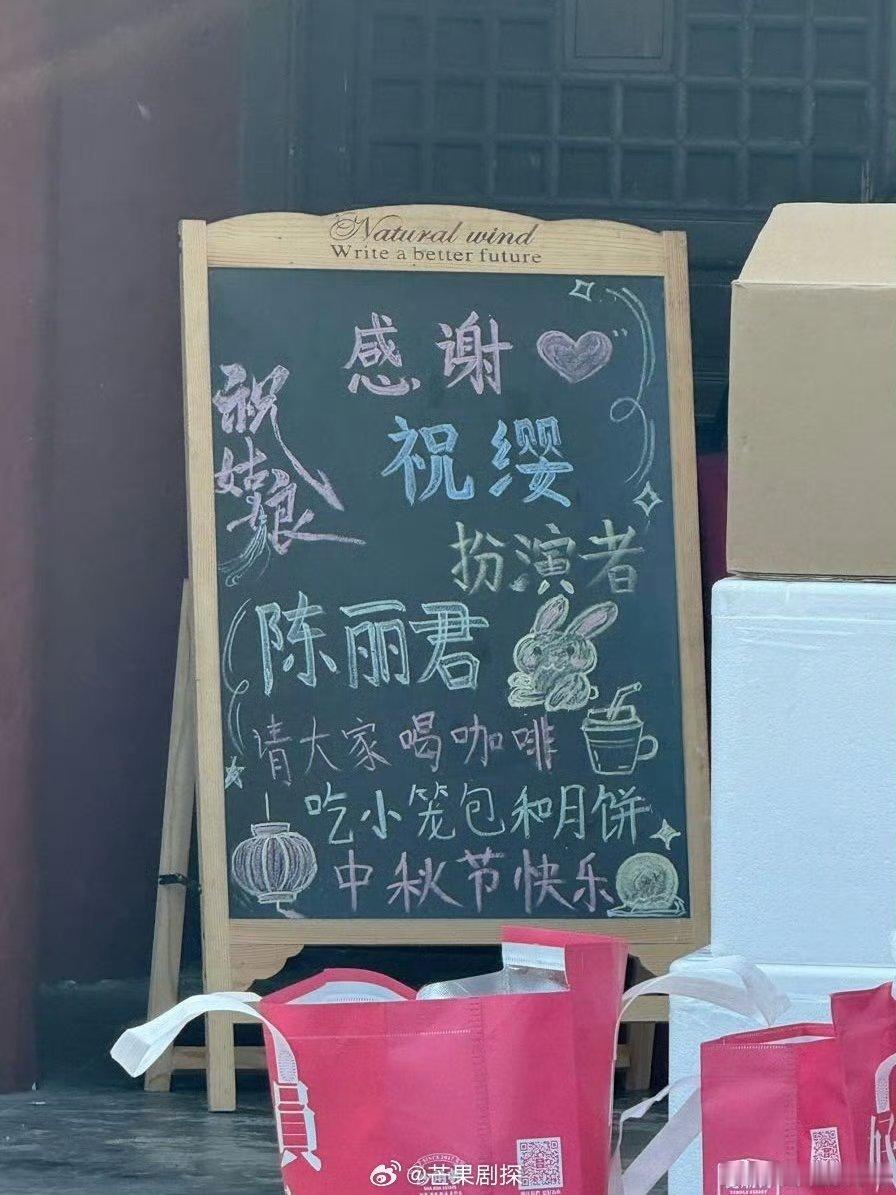 Natural wind
Write a better future
感谢
祝姑娘
祝缨
扮演者
陈丽君
请大家喝咖啡
吃小笼包和月饼
中秋节快乐
員
@芒果剧探